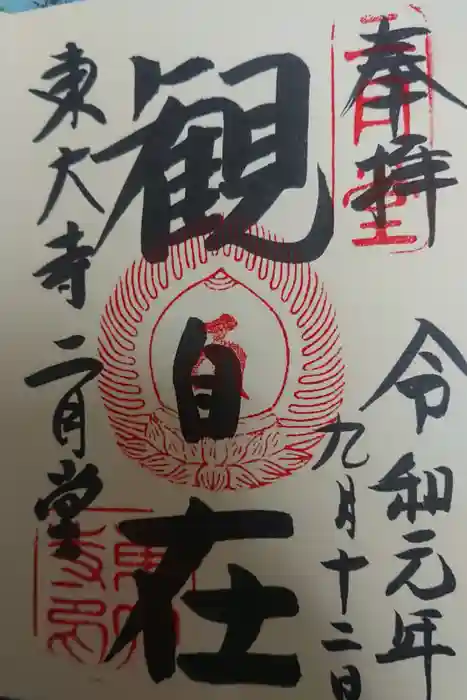 奉拝
二月堂
令和元年
九月十二日
観自在
東大寺二月堂